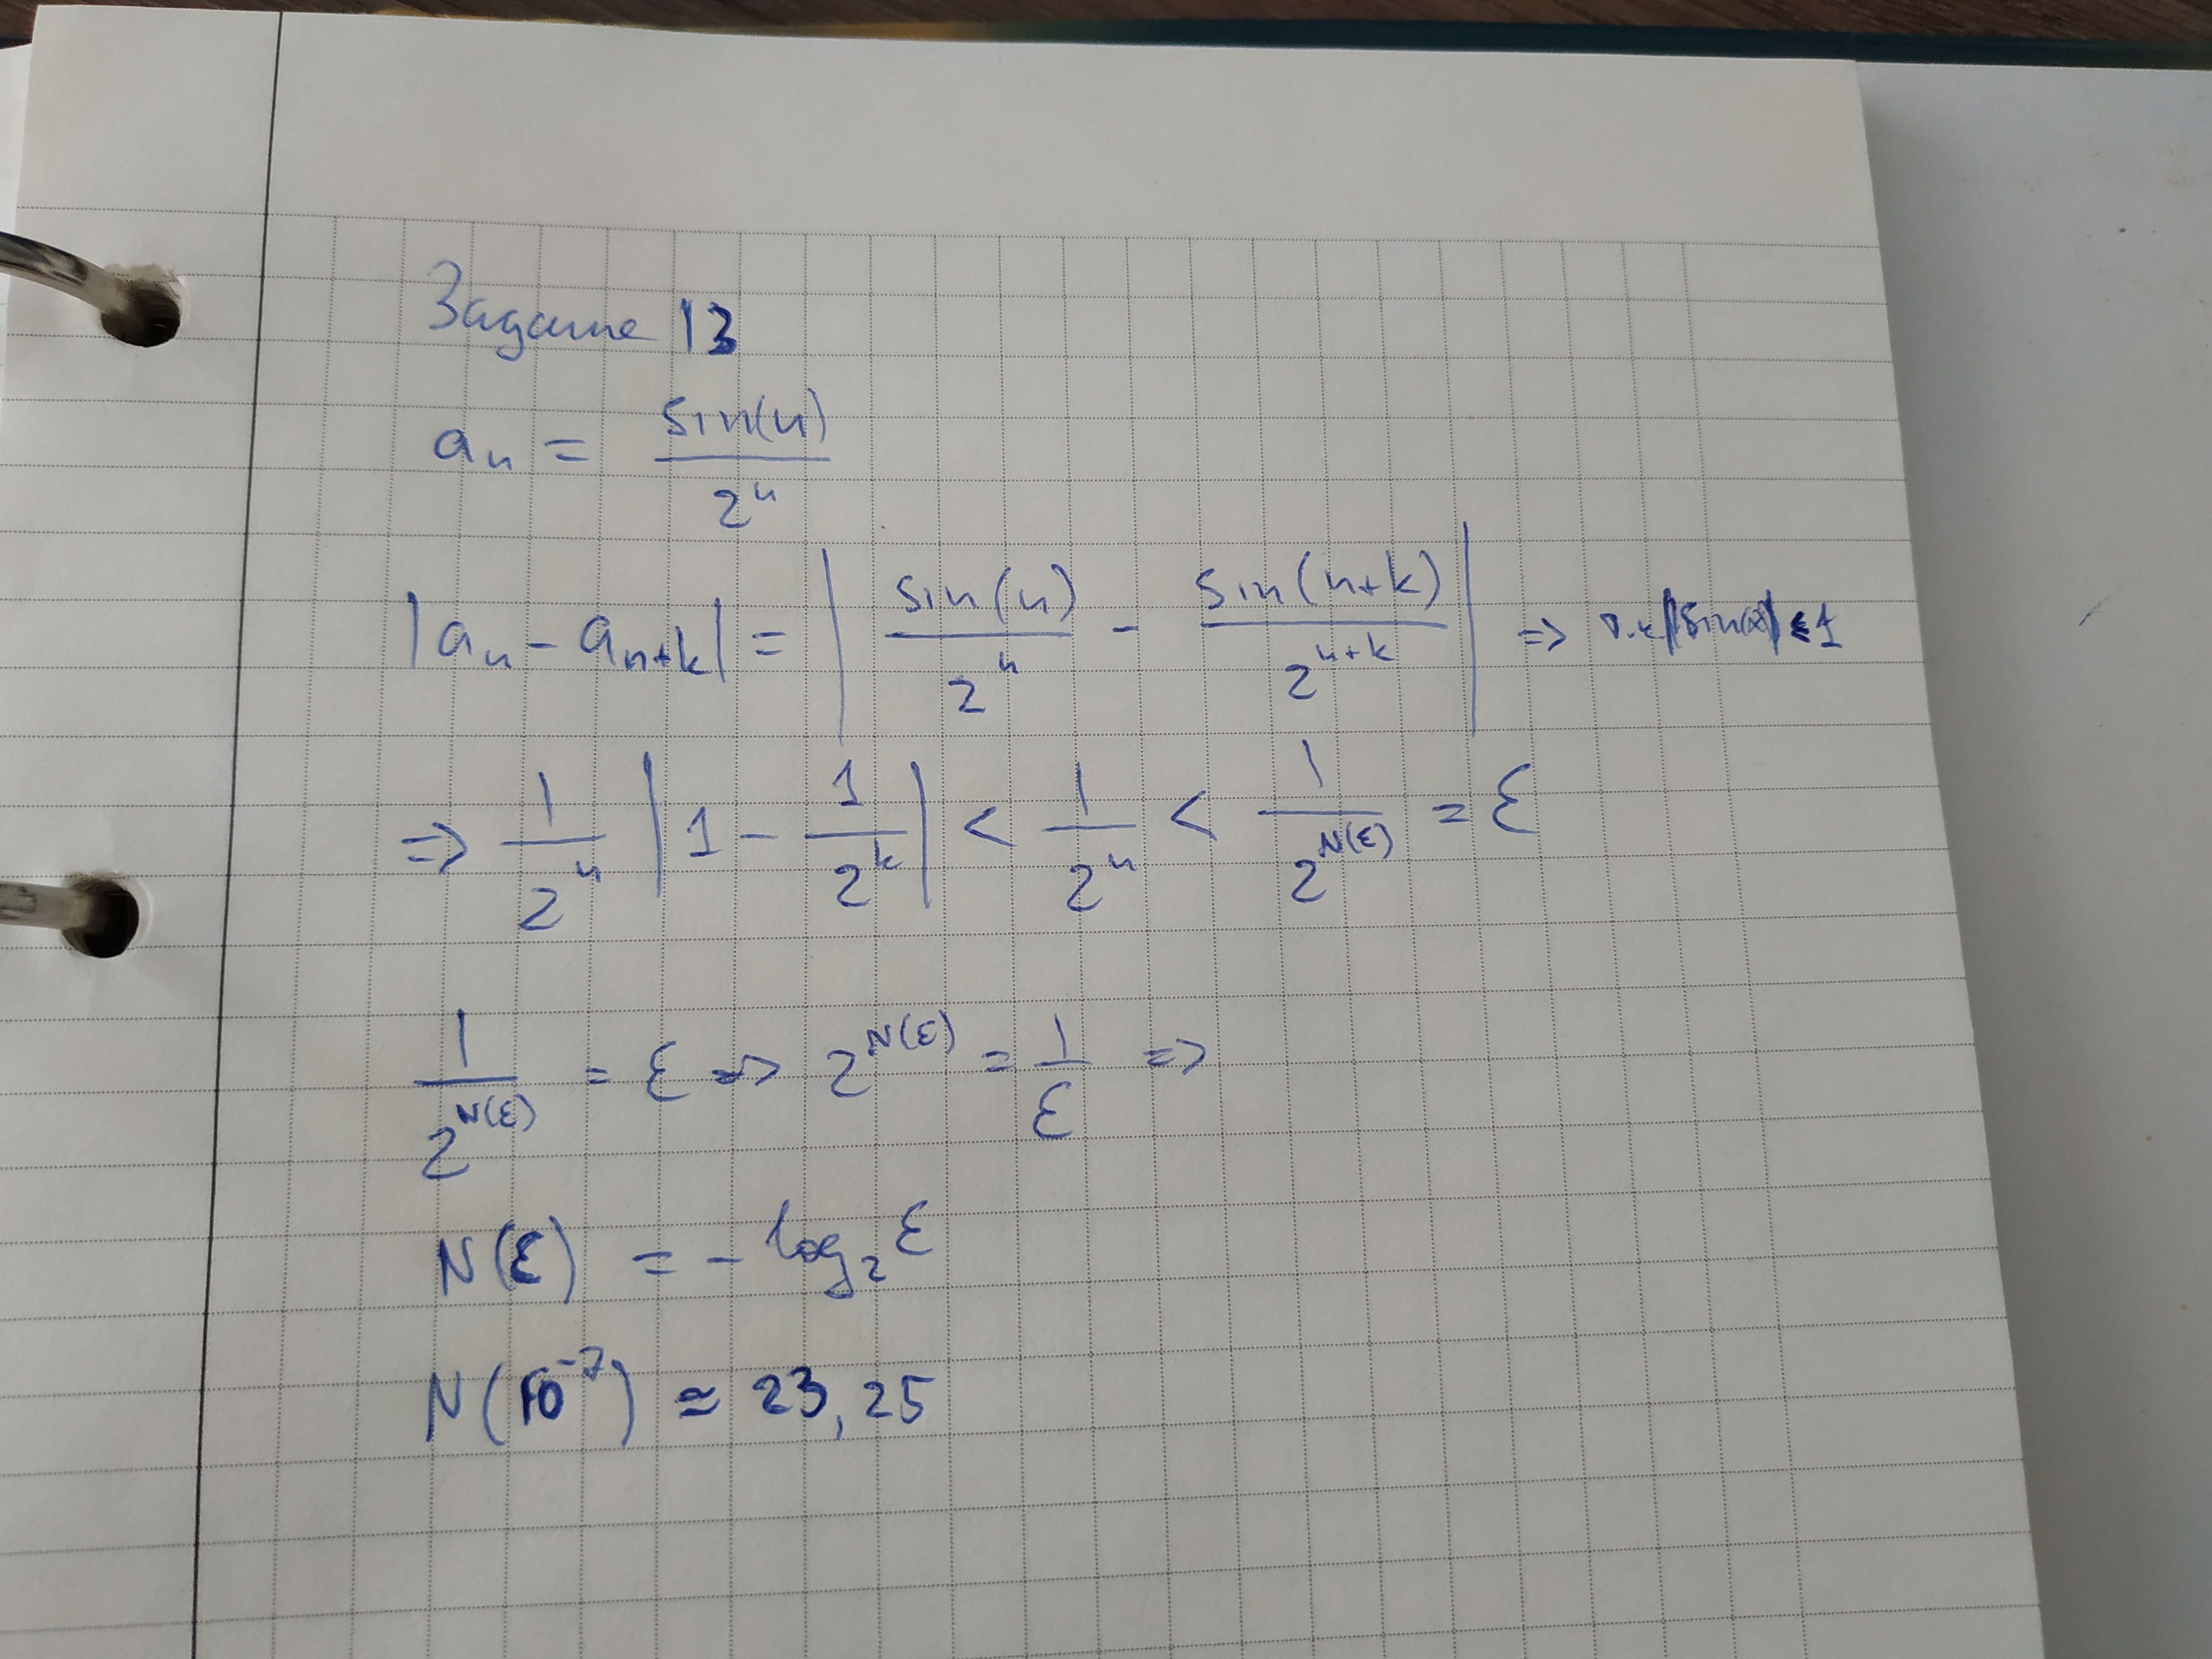 Задание 13
aₙ = sin(n) / 2ⁿ
|aₙ - aₙ₊ₖ| = | sin(n) / 2ⁿ - sin(n+k) / 2ⁿ⁺ᵏ | => т.к |sin(x)| ≤ 1
=> 1 / 2ⁿ | 1 - 1 / 2ᵏ | < 1 / 2ⁿ < 1 / 2^N(ε) = ε
1 / 2^N(ε) = ε => 2^N(ε) = 1 / ε =>
N(ε) = - log₂ ε
N(10⁻⁷) ≃ 23,25